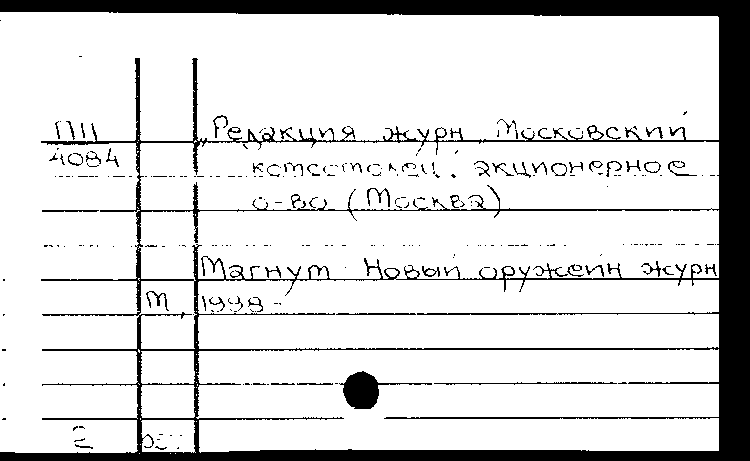 ПП
4084
„Редакция журн „Московский
комсомолец". акционерное
о-во (Москва)
Магнум Новый оружейн журн
М, 1998 -
2